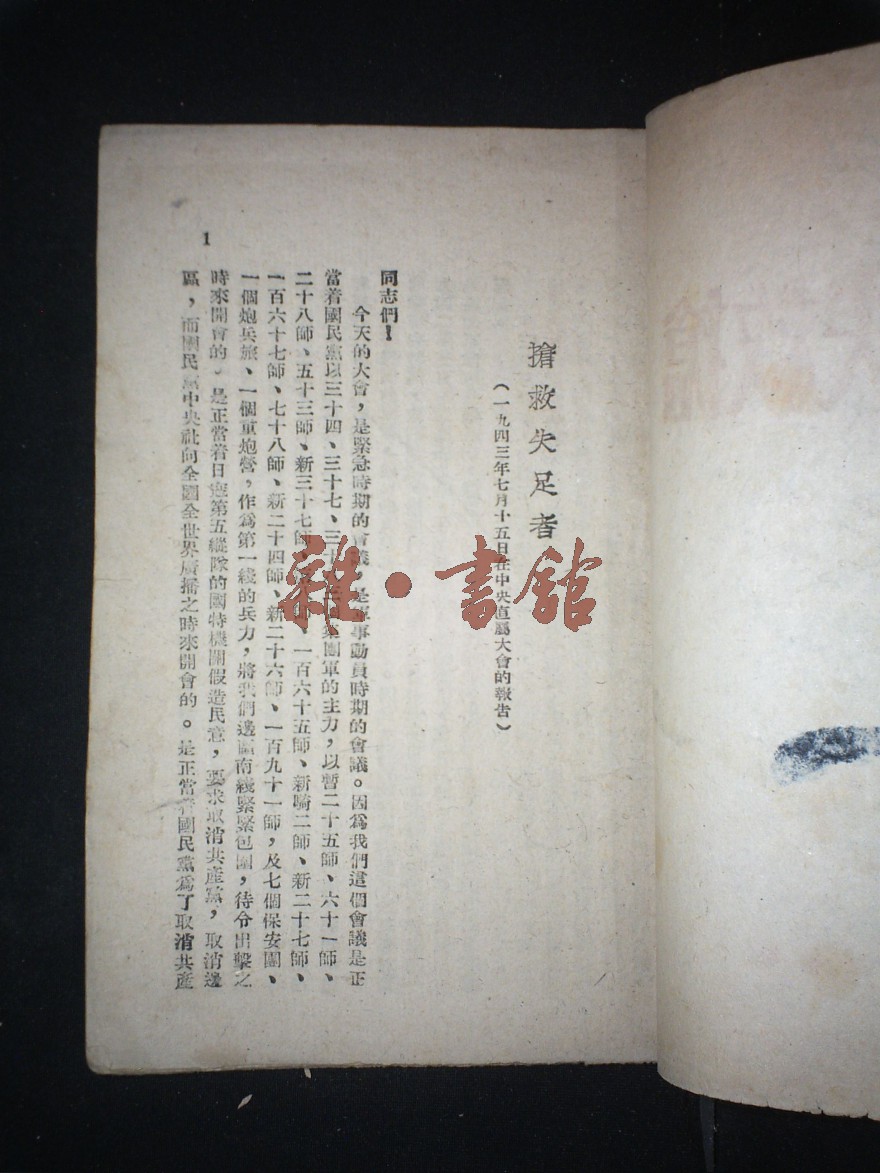 搶救失足者
(一九四三年七月十五日在中央直屬大會的報告)
同志們！
今天的大會，是緊急時期的會議，是軍事動員時期的會議。因爲我們這個會議是正
當着國民黨以三十四、三十七、三十 集團軍的主力，以暫二十五師、六十一師、
二十八師、五十三師、新三十七師、 師、一百六十五師、新騎二師、新二十七師、
一百六十七師、七十八師、新二十四師、新二十六師、一百九十一師，及七個保安團、
一個炮兵旅、一個重炮營，作爲第一綫的兵力，將我們邊區南綫緊緊包圍，待令出擊之
時來開會的。是正當着日寇第五縱隊的國特機關假造民意，要求取消共產黨，取消邊
區，而國民黨中央社向全國全世界廣播之時來開會的。是正當着國民黨爲了取消共產
1
雜·書館